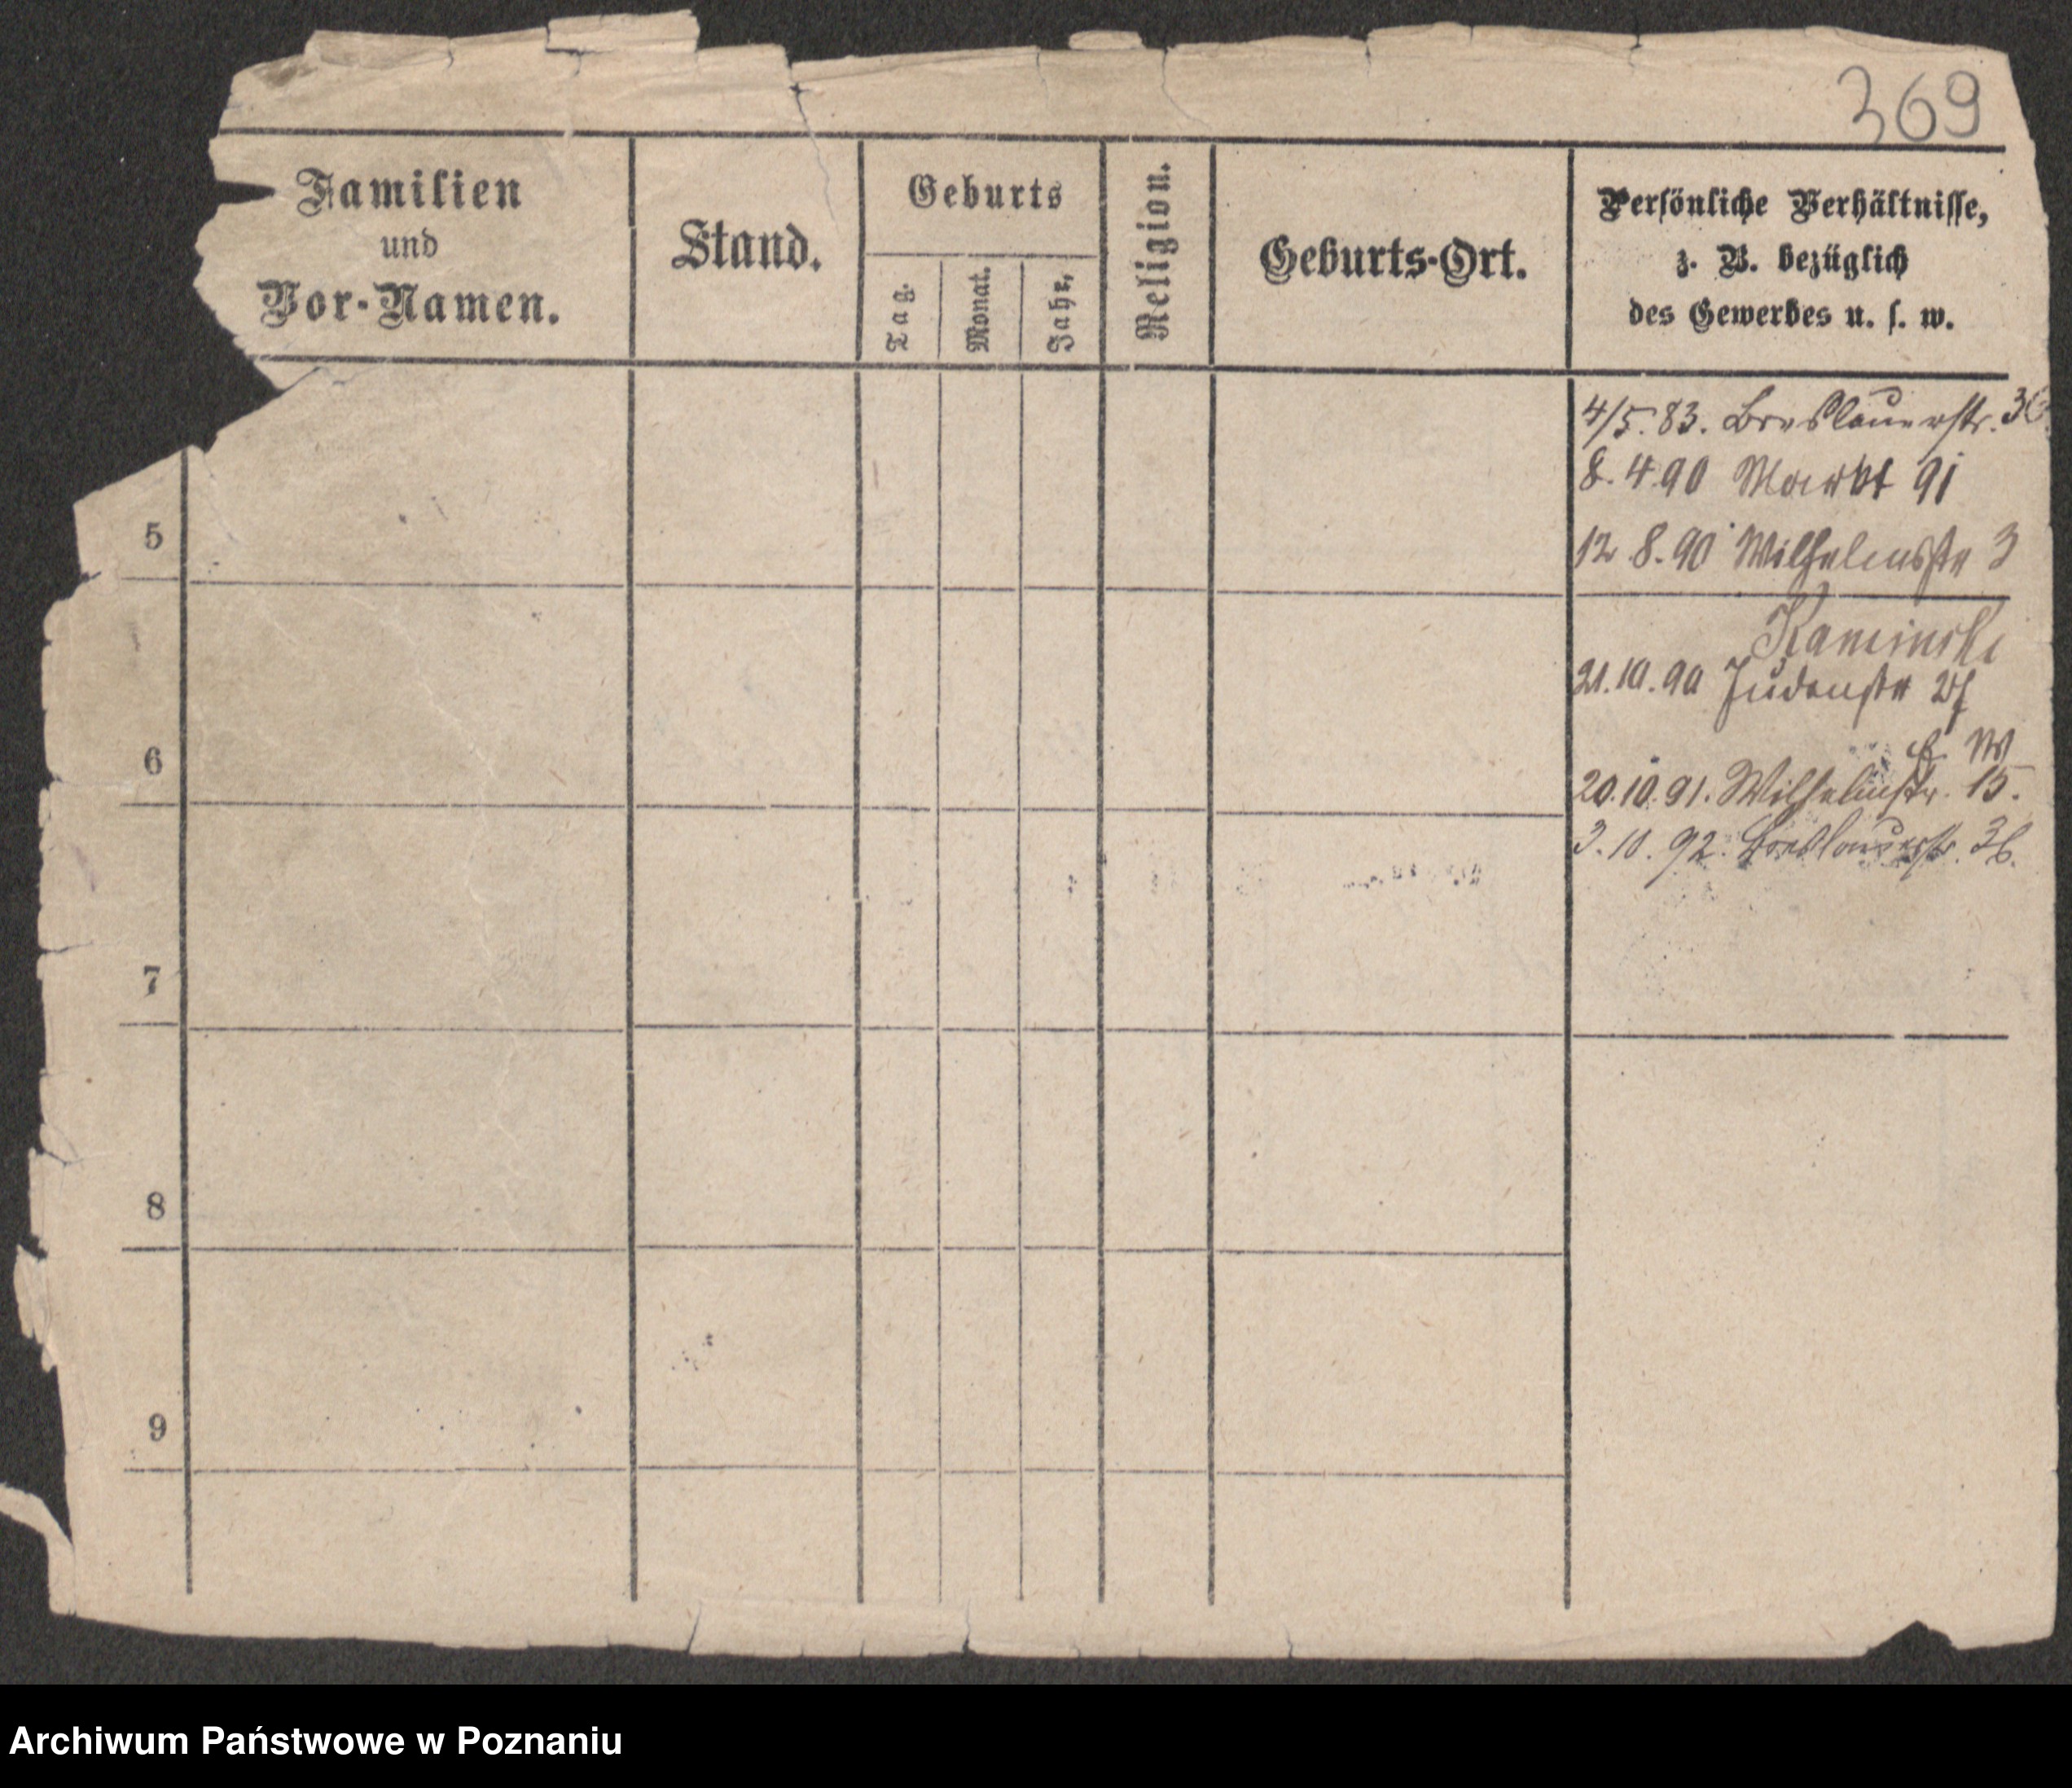 369
Familien
und
Vor-Namen.
Stand.
Geburts
Tag.
Monat.
Jahr,
Religion.
Geburts-Ort.
Persönliche Verhältnisse,
z. B. bezüglich
des Gewerbes u. s. w.
4/5. 83. Breslauerstr. 36
8. 4. 90 Markt 91
5
12 8. 90 Wilhelmsstr 3
Kaminski
21. 10. 90 Judenstr
6
20. 10. 91. Wilhelmstr. 15.
3. 10. 92. Breslauerstr. 36.
7
8
9
Archiwum Państwowe w Poznaniu